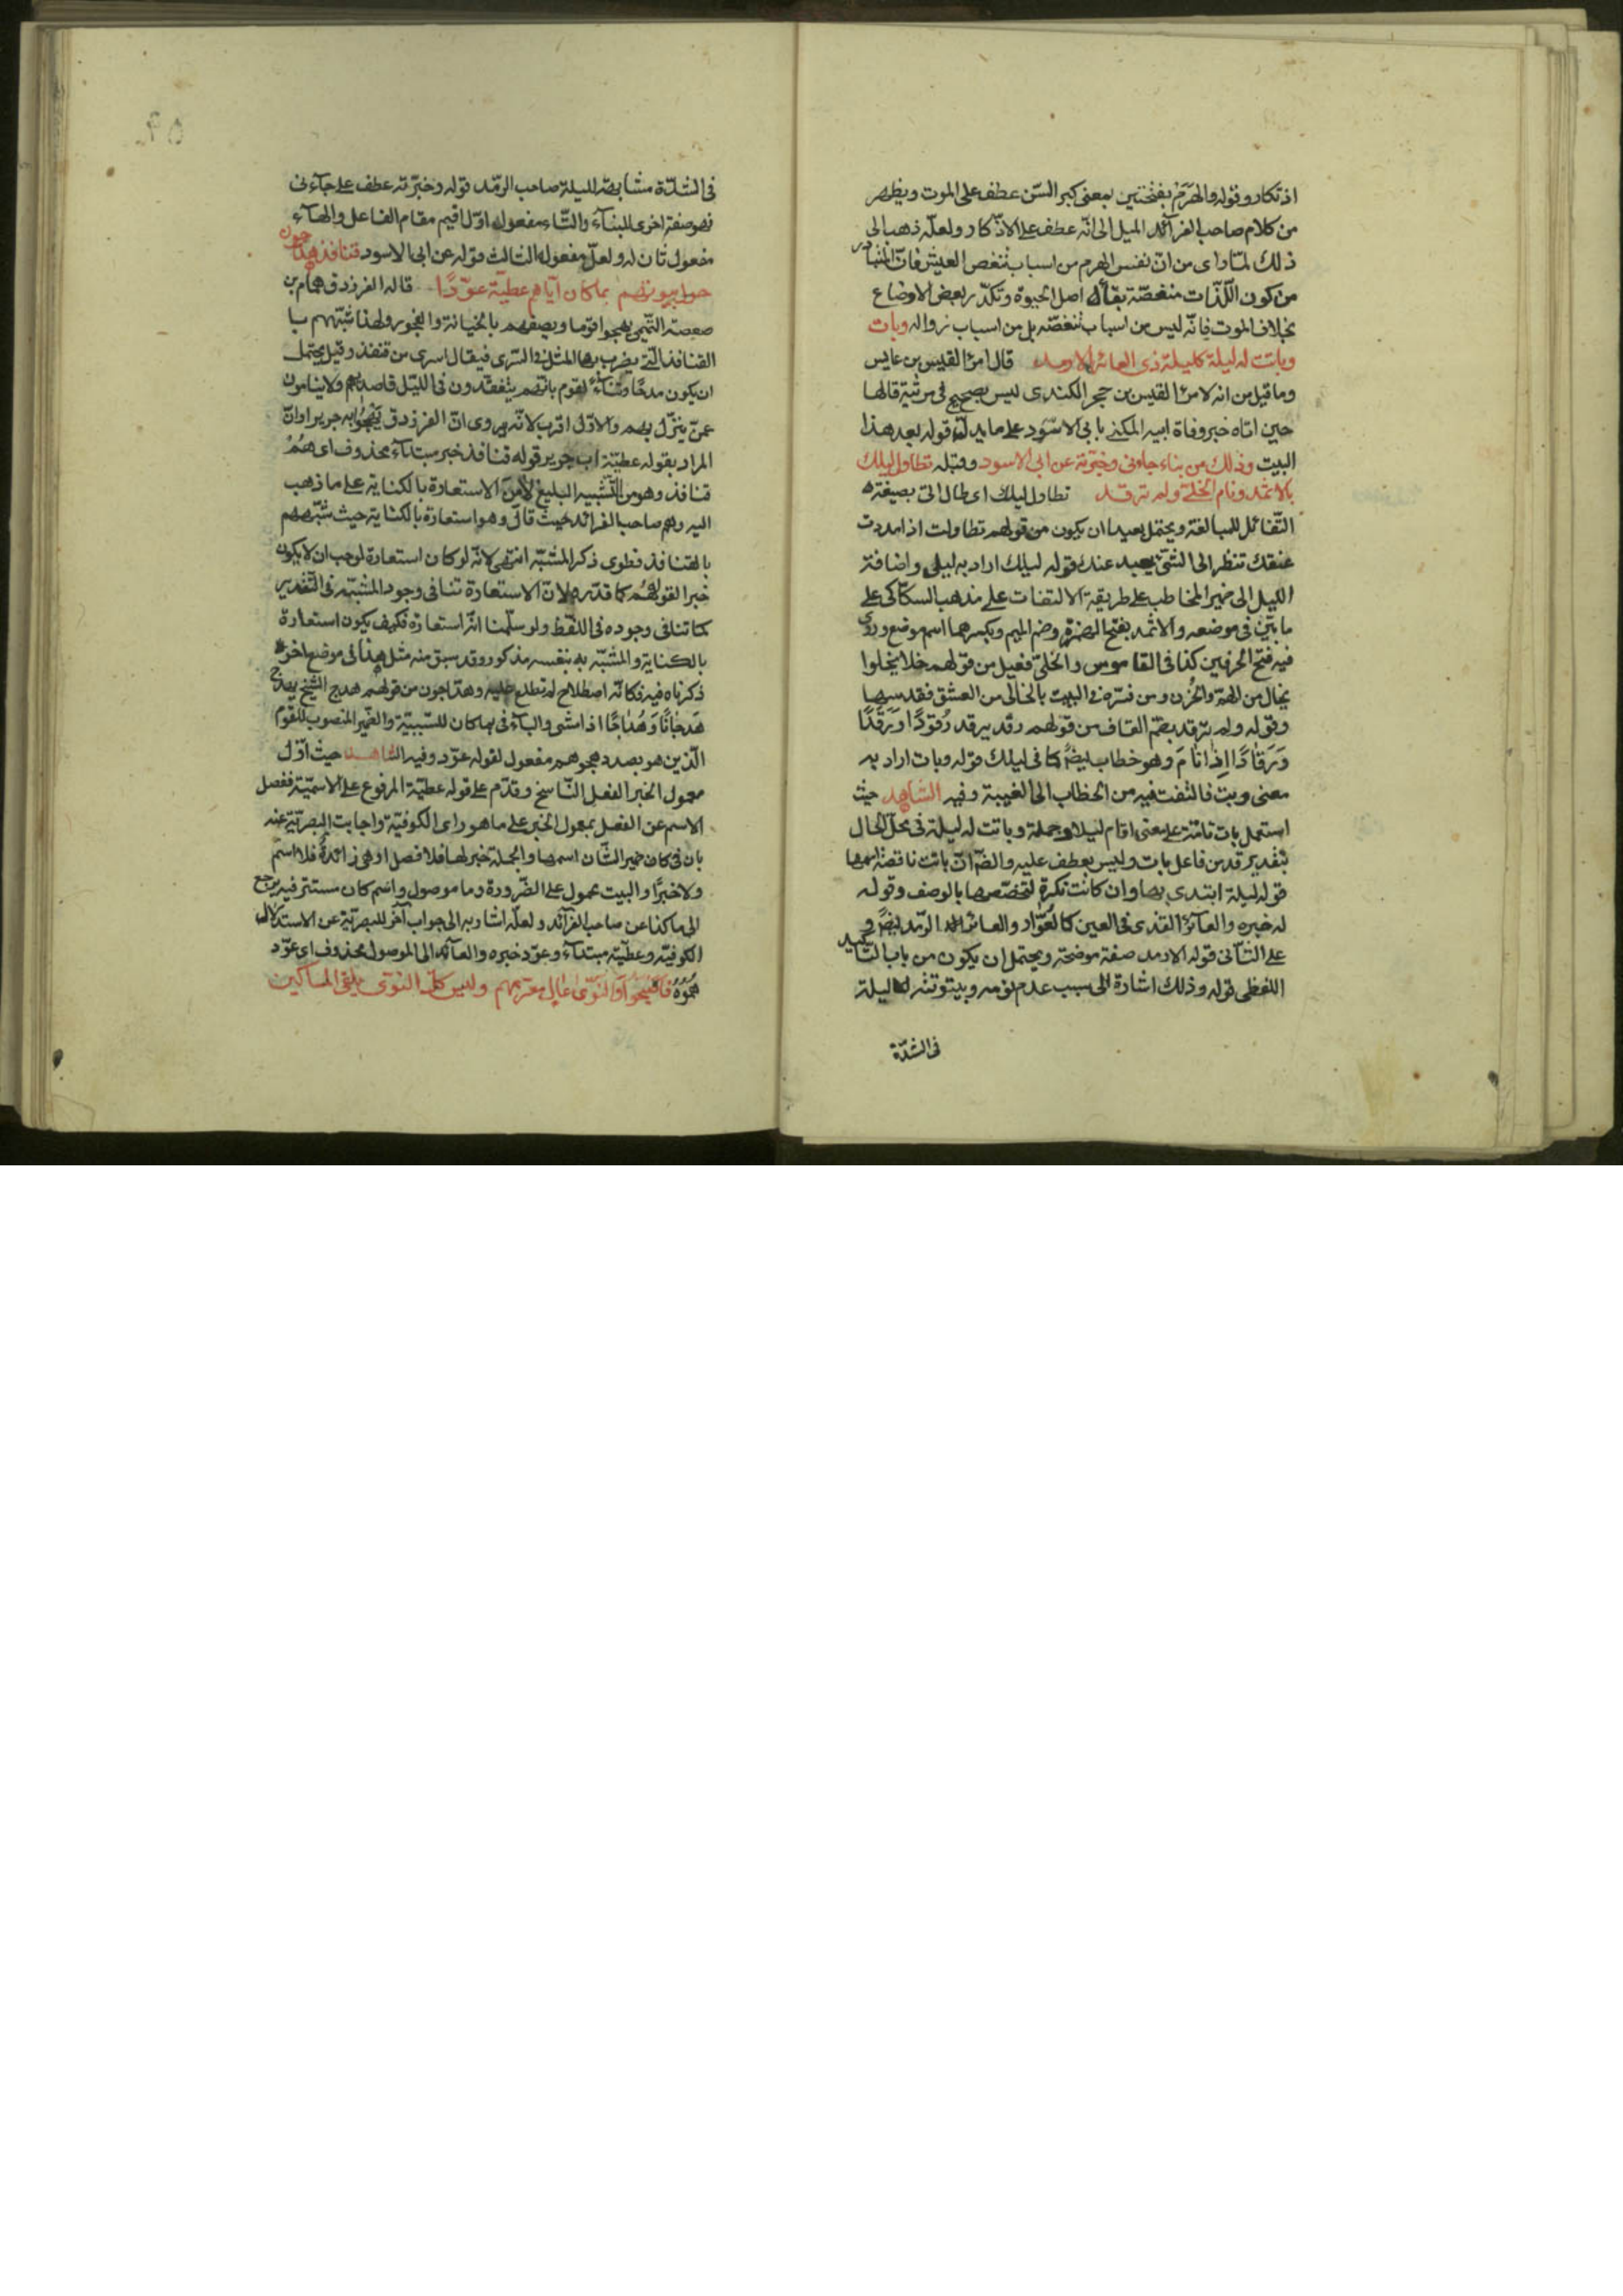 اذتكار وقوله والهَرَمْ بفتحتين بمعنى كبر السّن عطف على الموت ويظهر
من كلام صاحب الفرآئد الميل الى انّه عطف على الادّكار ولعلّه ذهب الى
ذلك لمّا راى من انّ نفس الهرم من اسباب تنغص العيش فانّ المتبادر
من كون اللّذّات منغصّة بقآء اصل الحيوة وتكدّر بعض الاوضاع
بخلاف الموت فانّه ليس من اسباب تنغصّه بل من اسباب زواله وبات
وباتت له ليلة كليلة ذى العائر الارمد قال امرئ القيس بن عابس
وما قيل من انه لامرئ القيس بن حجر الكندى ليس بصحيح فى مرثية قالها
حين اتاه خبر وفاة ابيه المكنى بابى الاسود على ما يدلّ قوله بعد هذا
البيت وذلك من نباء جاءنى وخبّرته عن ابى الاسود وقبله تطاول ليلك
بالاثمد ونام الخلىّ ولم ترقد تطاول ليلك اى طال اتى بصيغة
التّفاعل للمبالغة ويحتمل بعيدا ان يكون من قولهم تطاولت اذا مددت
عنقك تنظر الى الشئ يبعيد عنك قوله ليلك اراد به ليلى واضافة
الليل الى ضمير المخاطب على طريقة الالتفات على مذهب السكّاكى على
ما بيّن فى موضعه والاثمد بفتح الهمزة وضم الميم وبكسرهما اسم موضع وروى
فيه فتح الحرفين كذا فى القاموس والخلىّ فعيل من قولهم خلا يخلوا
بخال من الهمّ والحُزن ومن فسّره فى البيت بالخالى من العشق فقد سها
وقوله ولم ترقد بضمّ القاف من قولهم رقد يرقد رُقودًا ورَقدًا
وَرَقادًا اِذا نامَ وهو خطاب ايضًا كما فى ليلك قوله وبات اراد به
معنى وبتّ فالتفت فيه من الخطاب الى الغيبة وفيه الشاهد حيث
استعمل بات تامّة على معنى اقام ليلا وجملة وباتت له ليلة فى محلّ الحال
بتقدير قد من فاعل بات وليس بعطف عليه والضّ انّ باتت ناقصة اسمها
قوله ليلة ابتدى بها وان كانت نكرة لتخصّصها بالوصف وقوله
له خبره والعآئر القذى فى العين كالعُوّار والعائر الرّمد ايضًا و
على الثّانى قوله الارمد صفة موضحة ويحتمل ان يكون من باب التّاكيد
اللفظى قوله وذلك اشارة الى سبب عدم نومه وبيتوتته ليلة
فى الشدّة
فى الشدّة مشابهة لليلة صاحب الرمّد قوله وخبّرته عطف على جآءنى
فهو صفة اخرى للنبآء والتّاء مفعوله اوّل اقيم مقام الفاعل والهآء
مفعول ثان له ولعلّ مفعوله الثالث قوله عن ابى الاسود قنافذ هدّاجون
حول بيوتهم بما كان ايّاهم عطيّة عوّدًا قاله الفرزدق همام بن
صعصة التّميمى يهجوا قوما ويصفهم بالخيانة والفجور ولهذا شبّههم با
القنافذ الّتى يضرب بها المثل فى السّرى فيقال اسرى من قنفذ وقيل يحتمل
ان يكون مدحًا وثنآءً لقوم بانّهم يتفقّدون فى اللّيل قاصديهم ولا ينامون
عمّن ينزل بهم والاوّل اقرب لانّه روى انّ الفرزدق يَهْجُوا به جرير اوانّ
المراد بقوله عطيّة اب جرير قوله قنافذ خبر مبتدآء محذوف اى هُمُ
قنافذ وهو من التّشبيه البليغ لا من الاستعارة بالكناية على ما ذهب
اليه وهم صاحب الفرائد حيث قال وهو استعارة بالكناية حيث شبّههم
بالقنافذ فطوى ذكر المشبّه انتهى لانّه لو كان استعارة لوجب ان لا يكون
خبرا لقوله هُم كما قدّره ولانّ الاستعارة تنافى وجود المشبّه فى التّقدير
كما تنافى وجوده فى اللفظ ولو سلّمنا انّه استعارة فكيف يكون استعارة
بالكناية والمشبّه به بنفسه مذكور وقد سبق منه مثل هذا فى موضع اخر
ذكرناه فيه فكانّه اصطلاح لم نطلع عليه وهدّاجون من قولهم هدج الشيخ يهدج
هَدجانًا وَهُداجًا اذا مشى والبآء فى بما كان للسّببيّة والضّمير المنصوب للقوم
الّذين هو بصدد هجوهم مفعول لقوله عوّد وفيه الشاهد حيث اوّل
معمول الخبر الفعل النّاسخ وقدّم على قوله عطيّة المرفوع على الاسميّة ففصل
الاسم عن الفعل بمعول الخبر على ما هو راى الكوفيّة واجابت البصريّة عنه
بان فى كان ضمير الشّان اسمها والجملة خبر لها فلا فصل او هى زائدة فلا اسم
ولا خبرًا والبيت محمول على الضّرورة وما موصول واسم كان مستتر فيه يرجع
الى ما كذا عن صاحب الفرآئد ولعلّه اشار به الى جواب آخر للبصريّة عن الاستدلال
الكوفيّه وعطيّة مبتدآء وعوّد خبره والعآئد الى الموصول محذوف اى عوّد
هُمُوُهُ فاصبحوا والنّوى عالى معرّسهم وليس كلّ النوى يلقى المساكين